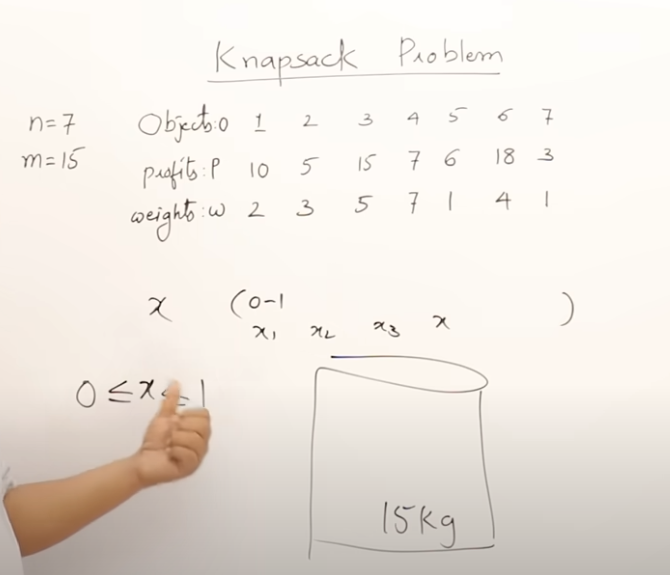 Knapsack Problem
n=7 Objects:O 1 2 3 4 5 6 7
m=15 profits: P 10 5 15 7 6 18 3
weights: w 2 3 5 7 1 4 1
x (0-1 )
x₁ x₂ x₃ x
0 ≤ x ≤ 1
15kg